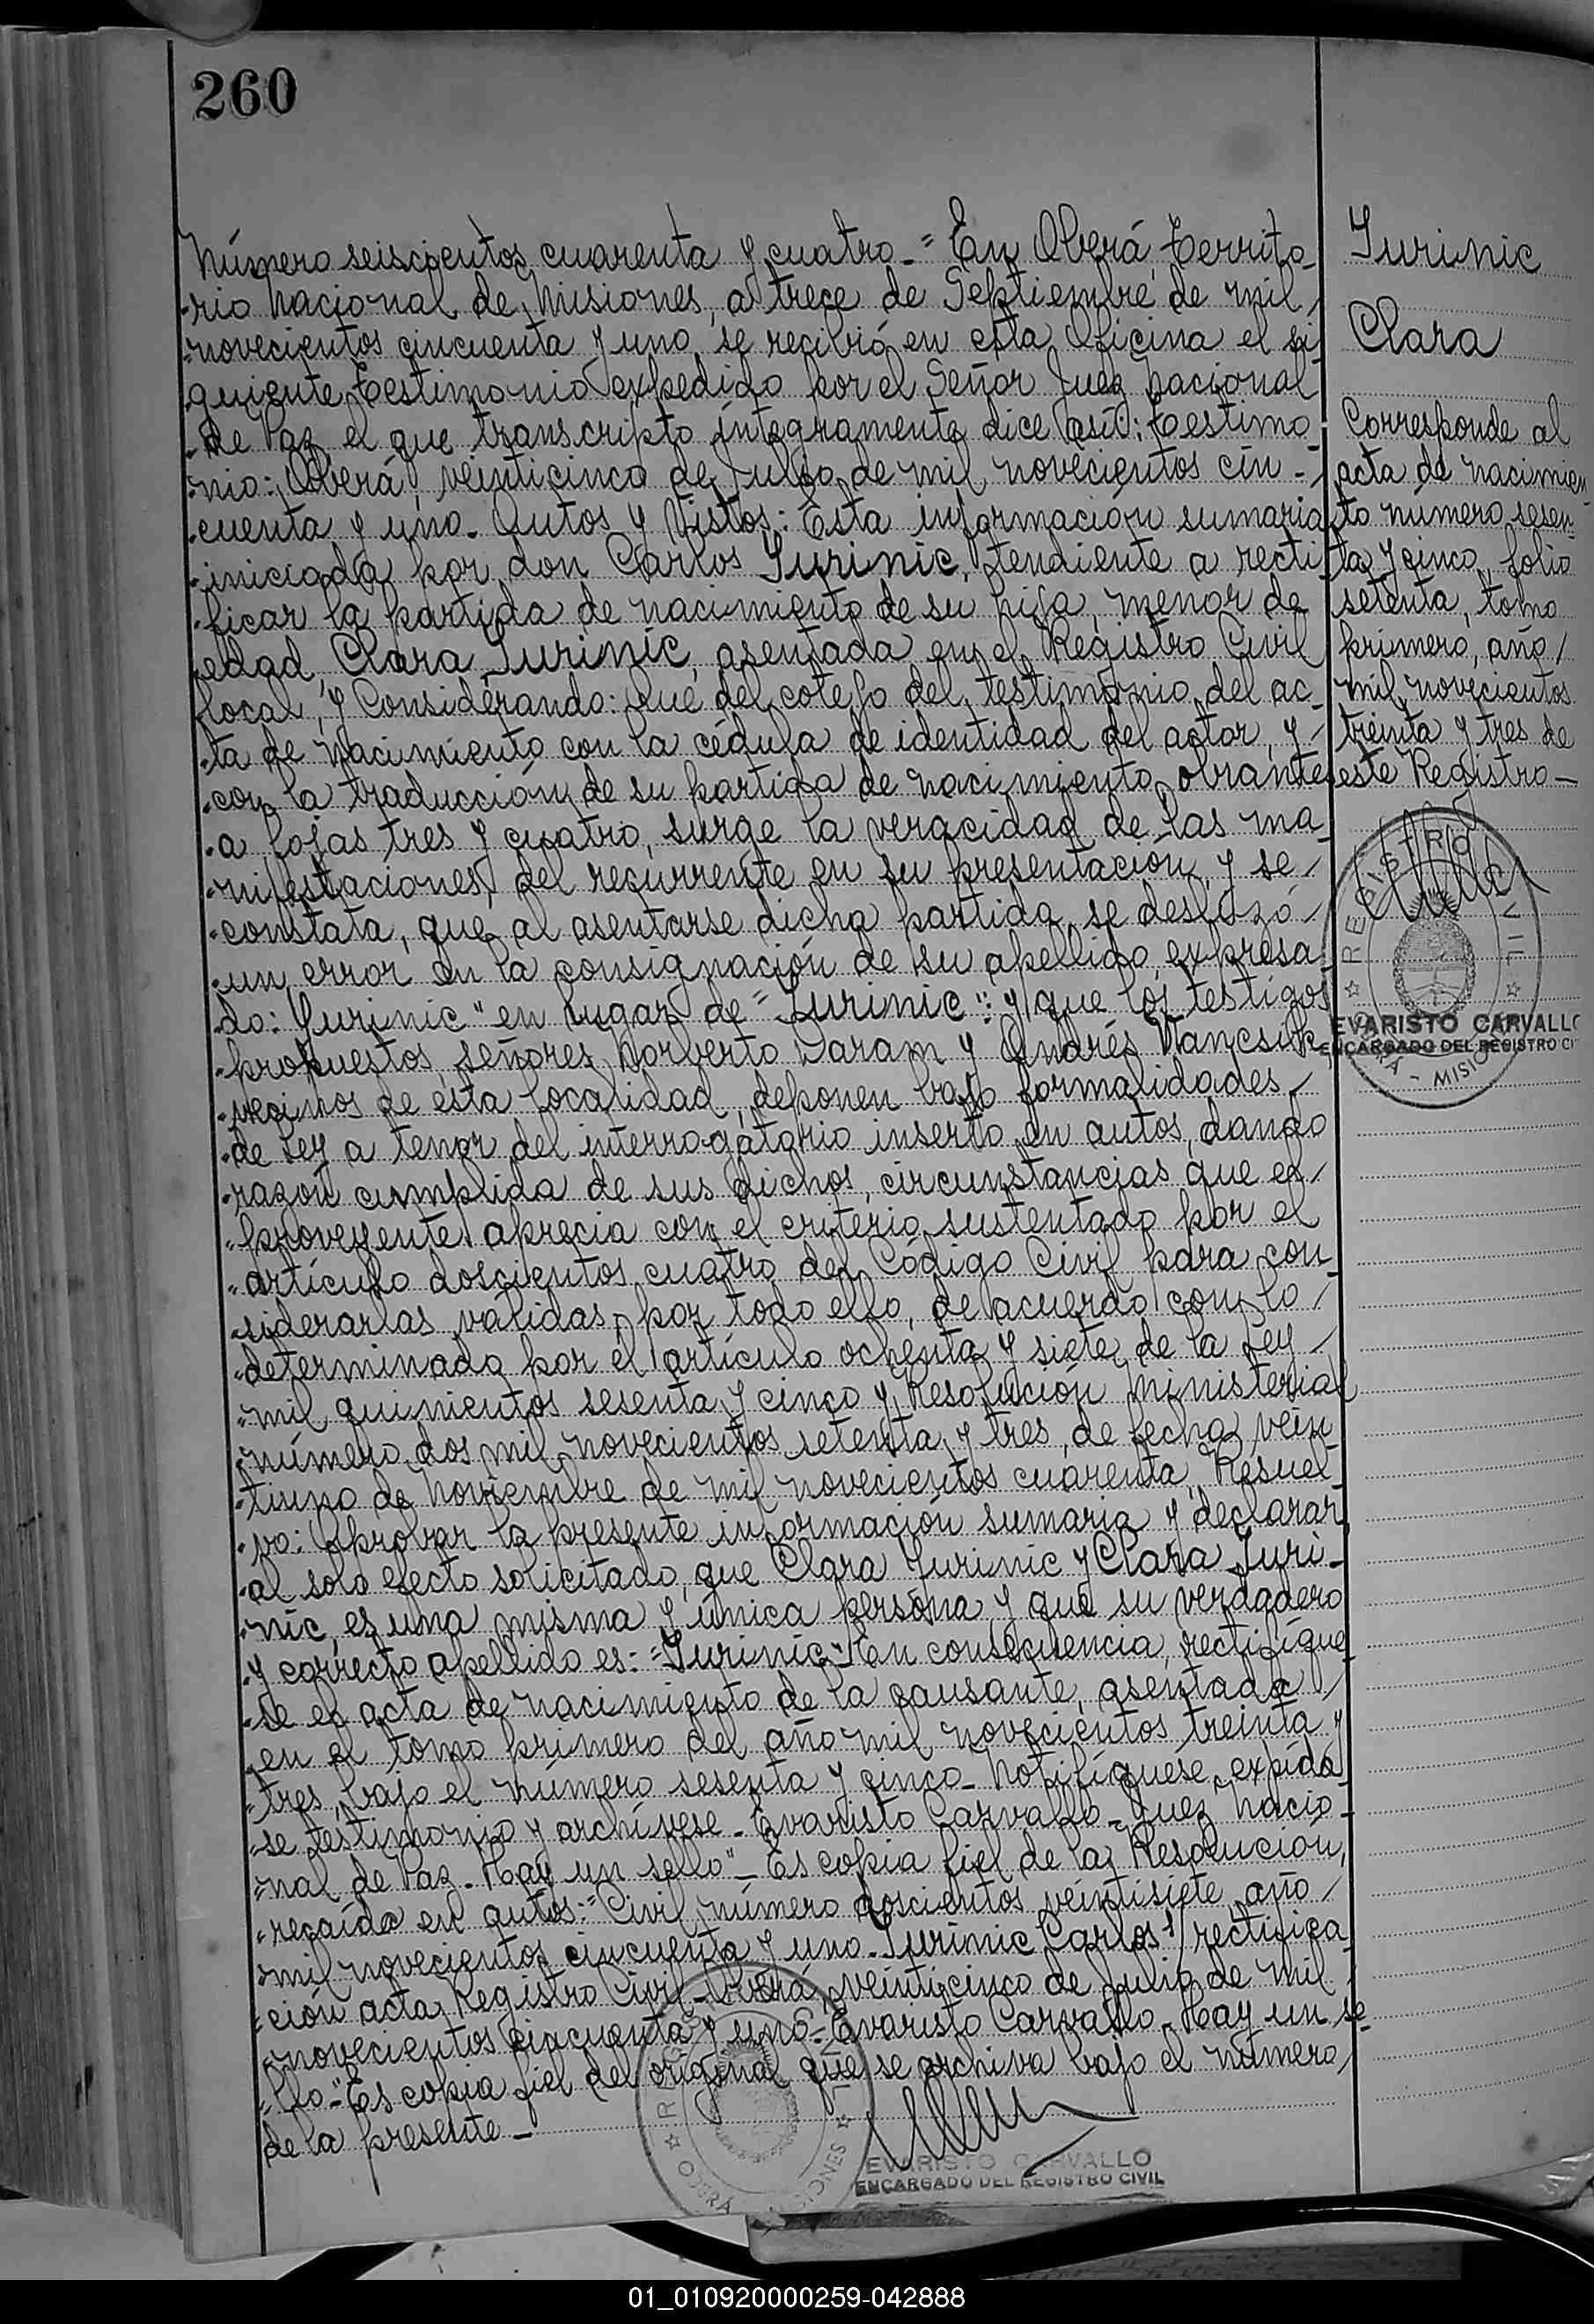 260
Número seiscientos cuarenta y cuatro.= En Oberá, Territo-
rio Nacional de Misiones, a trece de Septiembre de mil /
novecientos cincuenta y uno, se recibió en esta Oficina el si-
guiente testimonio expedido por el Señor Juez Nacional
de Paz el que transcripto íntegramente dice así: "Testimo-
nio: Oberá, veinticinco de Julio de mil novecientos cin-
cuenta y uno. Autos y Vistos: Esta información sumaria
iniciada por don Carlos Jurinic, tendiente a recti-
ficar la partida de nacimiento de su hija, menor de
edad, Clara Jurinic, asentada en el Registro Civil
local, y Considerando: Que del cotejo del testimonio del ac-
ta de nacimiento con la cédula de identidad del actor, y
con la traducción de su partida de nacimiento, obrante
a fojas tres y cuatro, surge la veracidad de las ma-
nifestaciones del recurrente en su presentación, y se /
constata, que al asentarse dicha partida se deslizó /
un error en la consignación de su apellido, expresa-
do: "Yurinic" en lugar de "Jurinic"; y que los testigos
propuestos, señores Norberto Daram y Andrés Vancsik
vecinos de esta localidad, deponen bajo formalidades /
de ley a tenor del interrogatorio inserto en autos, dando
razón cumplida de sus dichos, circunstancias que el /
proveyente aprecia con el criterio sustentado por el
artículo doscientos cuatro del Código Civil para con-
siderarlas válidas; por todo ello, de acuerdo con lo /
determinado por el artículo ochenta y siete de la Ley /
mil quinientos sesenta y cinco y Resolución Ministerial
número dos mil novecientos setenta y tres, de fecha vein-
tiuno de Noviembre de mil novecientos cuarenta, Resuel-
vo: Aprobar la presente información sumaria y declarar,
al solo efecto solicitado, que Clara Yurinic y Clara Juri-
nic, es una misma y única persona y que su verdadero
y correcto apellido es: "Jurinic". En consecuencia, rectifíque-
se el acta de nacimiento de la causante, asentada /
en el tomo primero del año mil novecientos treinta y
tres, bajo el número sesenta y cinco. Notifíquese, expída-
se testimonio y archívese. Evaristo Carvallo. Juez Nacio-
nal de Paz. Hay un sello". Es copia fiel de la Resolución,
recaída en autos: "Civil número doscientos veintisiete, año /
mil novecientos cincuenta y uno. Jurinic Carlos s/ rectifica-
ción acta Registro Civil. Oberá, veinticinco de Julio de mil
novecientos cincuenta y uno. Evaristo Carvallo. Hay un se-
llo". Es copia fiel del original que se archiva bajo el número
de la presente.
EVARISTO CARVALLO
ENCARGADO DEL REGISTRO CIVIL
Jurinic
Clara
Corresponde al
acta de nacimien-
to número sesen-
ta y cinco, folio
setenta, tomo
primero, año /
mil novecientos
treinta y tres de
este Registro.
REGISTRO CIVIL
EVARISTO CARVALLO
ENCARGADO DEL REGISTRO CI
01_010920000259-042888